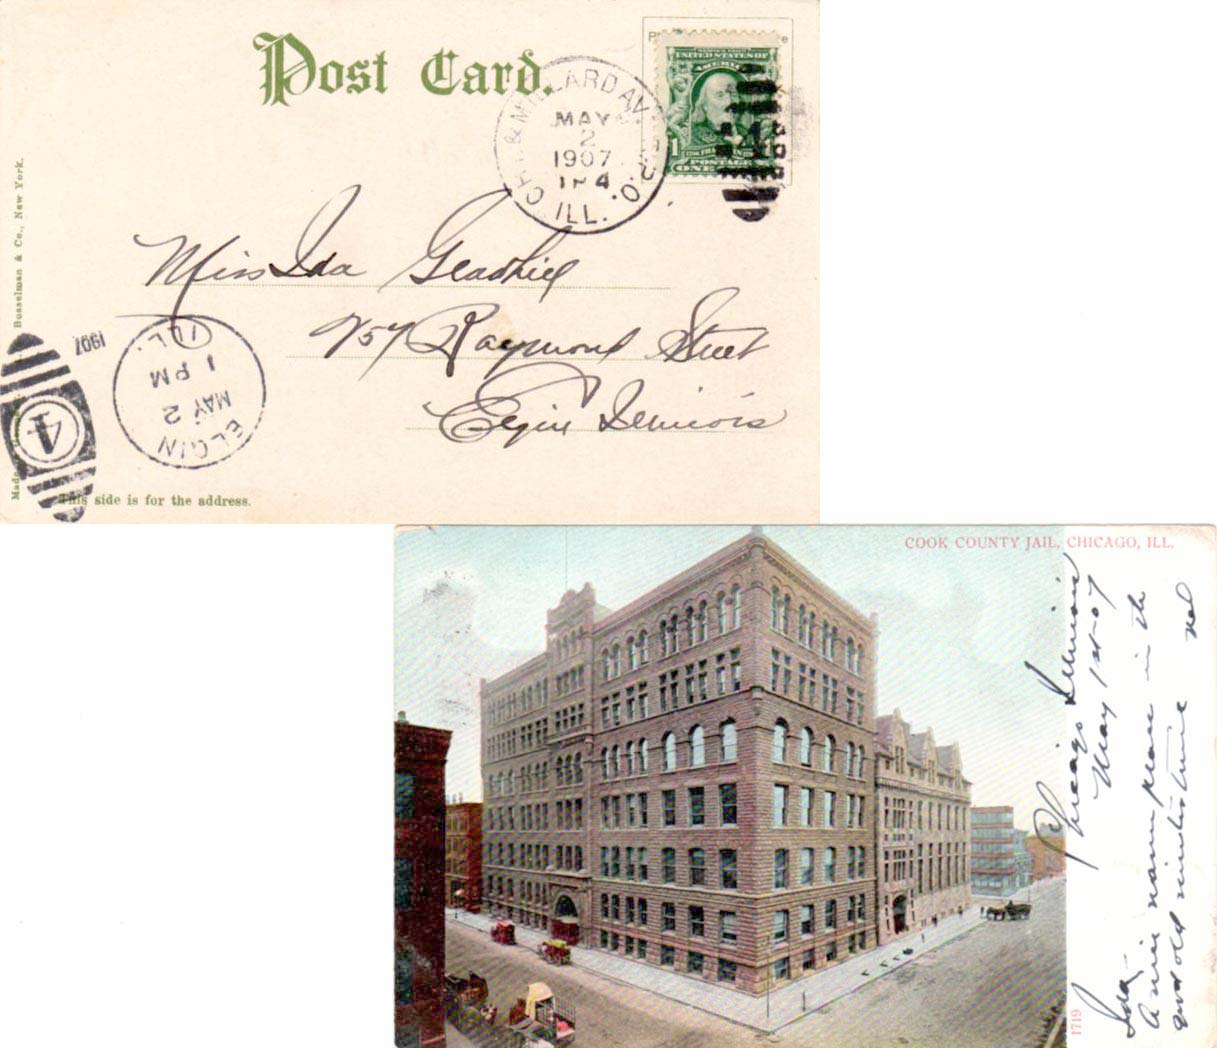 Post Card.
UNITED STATES OF
AMERICA
POSTAGE
ONE
1
CHI. & MILLARD AV. R.P.O.
MAY
2
1907
TR 4
ILL.
Miss Ida Gladhill
757 Raymond Street
Elgin Illinois
Bosselman & Co., New York.
Made
1907
4
ELGIN
MAY 2
1 PM
ILL.
This side is for the address.
COOK COUNTY JAIL, CHICAGO, ILL.
Chicago Illinois
May 1st-07
Ida -
A nice warm place in the
good old
1719